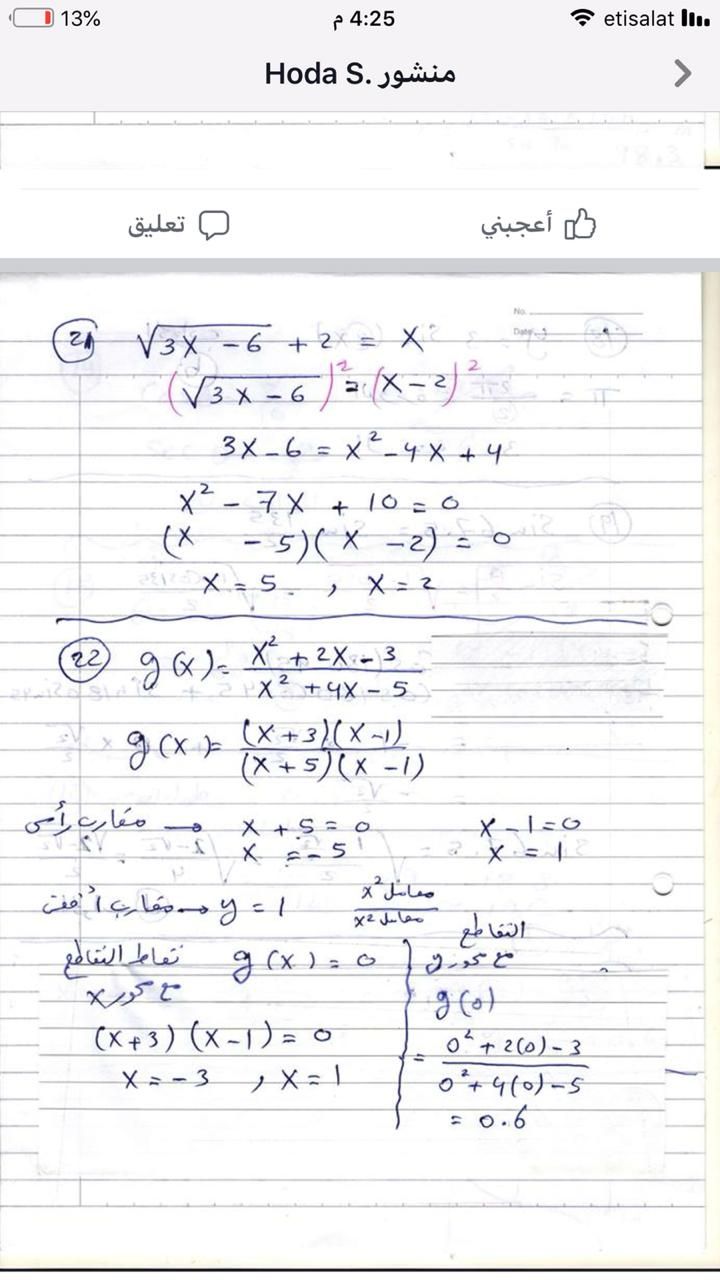 13%
4:25 م
etisalat
منشور Hoda S.
أعجبني
تعليق
No.
Date
21 √3x - 6 + 2 = x
(√3x - 6)² = (x - 2)²
3x - 6 = x² - 4x + 4
x² - 7x + 10 = 0
(x - 5)(x - 2) = 0
x = 5 , x = 2
22 g(x) = x² + 2x - 3 / x² + 4x - 5
g(x) = (x + 3)(x - 1) / (x + 5)(x - 1)
مقارب رأسى → x + 5 = 0
x = -5
x - 1 = 0
x = 1
مقارب أفقى → y = 1
معامل x²
معامل x²
نقاط التقاطع
مع محور x
g(x) = 0
(x + 3)(x - 1) = 0
x = -3 , x = 1
التقاطع
مع محور y
g(0)
= 0² + 2(0) - 3 / 0² + 4(0) - 5
= 0.6